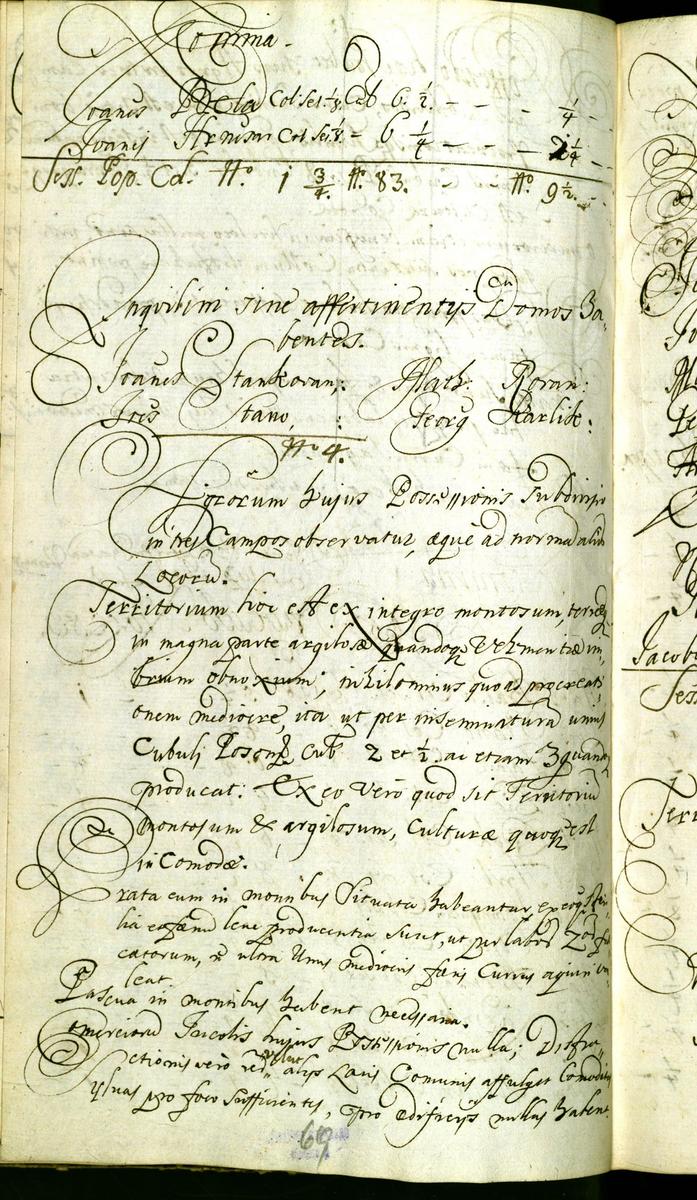 Nomina.
Joanes Col Ses. 1/8 Cub 6 1/2. - - - 1/4 -
Joanes Col Ses 1/8 - 6 1/4 - - - 1/4 -
Sess. Pop. Col. No. 1 3/4. No. 83. - - No. 9 1/2. -
Inquilini sine appertinentijs Domos Ha-
bentes.
Joanes Stankovan, : Math. Rovan :
Joes Stano, : Georg Karlik :
No. 4.
Agrorum hujus Possessionis Subdivisio
in tres Campos observatur, æque ad normã aliorũ
Locorũ.
Territorium hoc est ex integro montosum, terræq
in magna parte argilosæ quandoq Vehmentiæ im-
brium obnoxium; nihilominus quoad procreati-
onem mediocre, ita ut per inseminaturã unius
Cubuli Poson Cub 2 et 1/2. ac etiam 3 quandoq
producat: Ex eo Vero quod sit Territoriũ
montosum & argilosum, Culturæ quoq est
inComodæ.
Prata cum in montibus Situata Habeantur, ex eoq Steri-
lia producentia sunt, ut per labore
catorum, ultra Unius mediocris Currus
leat.
Pascua in montibus Habent necessaria.
Comerciorũ Incolis hujus Possessionis nulla; Distra-
ctionis vero alijs Comunis affulget Comoditas
Sylvas pro foco Sufficientes, pro ædificijs nullas Habent.
69